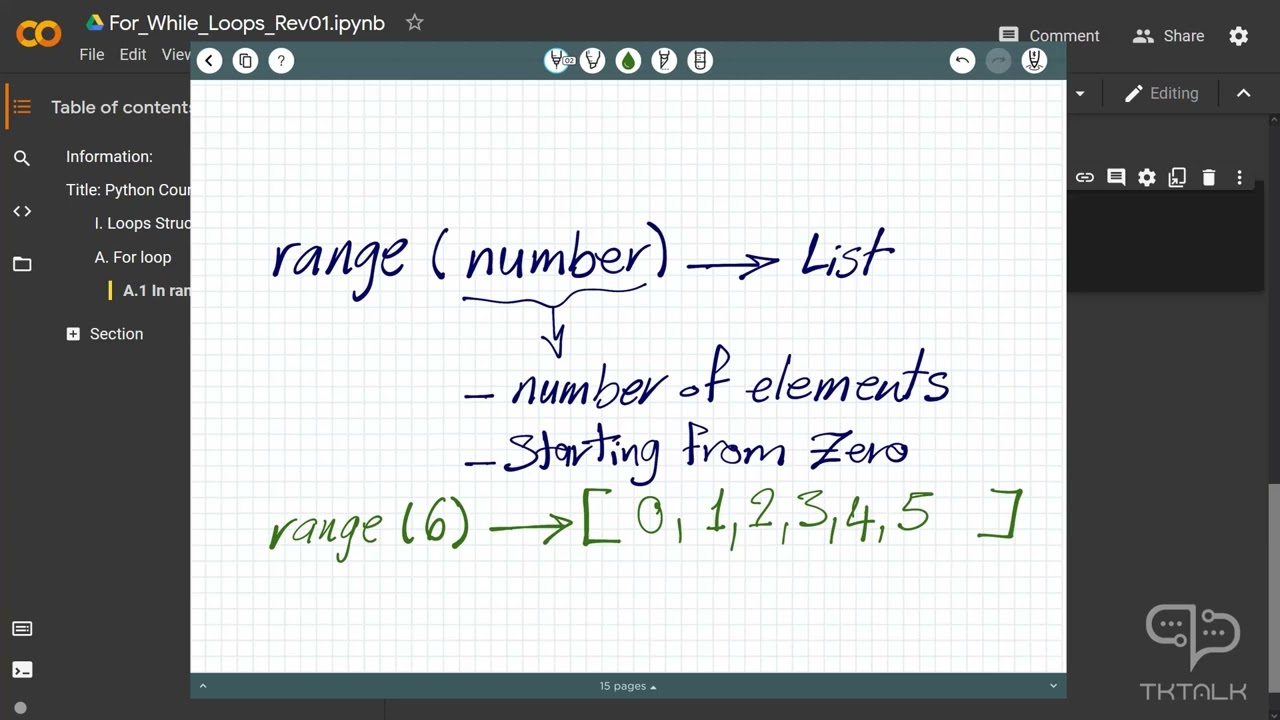 For_While_Loops_Rev01.ipynb
File Edit View
Comment Share
Table of contents
Editing
Information:
Title: Python Cour
I. Loops Struc
A. For loop
A.1 In ran
Section
?
02
range (number) → List
- number of elements
- Starting from Zero
range (6) → [ 0, 1, 2, 3, 4, 5 ]
15 pages
TKTALK